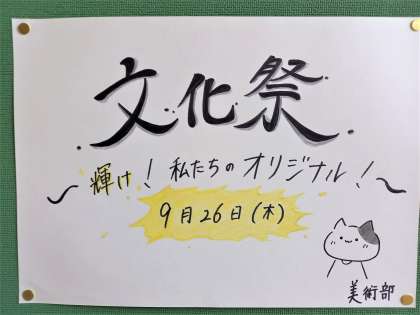 文化祭
～輝け！私たちのオリジナル！～
9月26日(木)
美術部